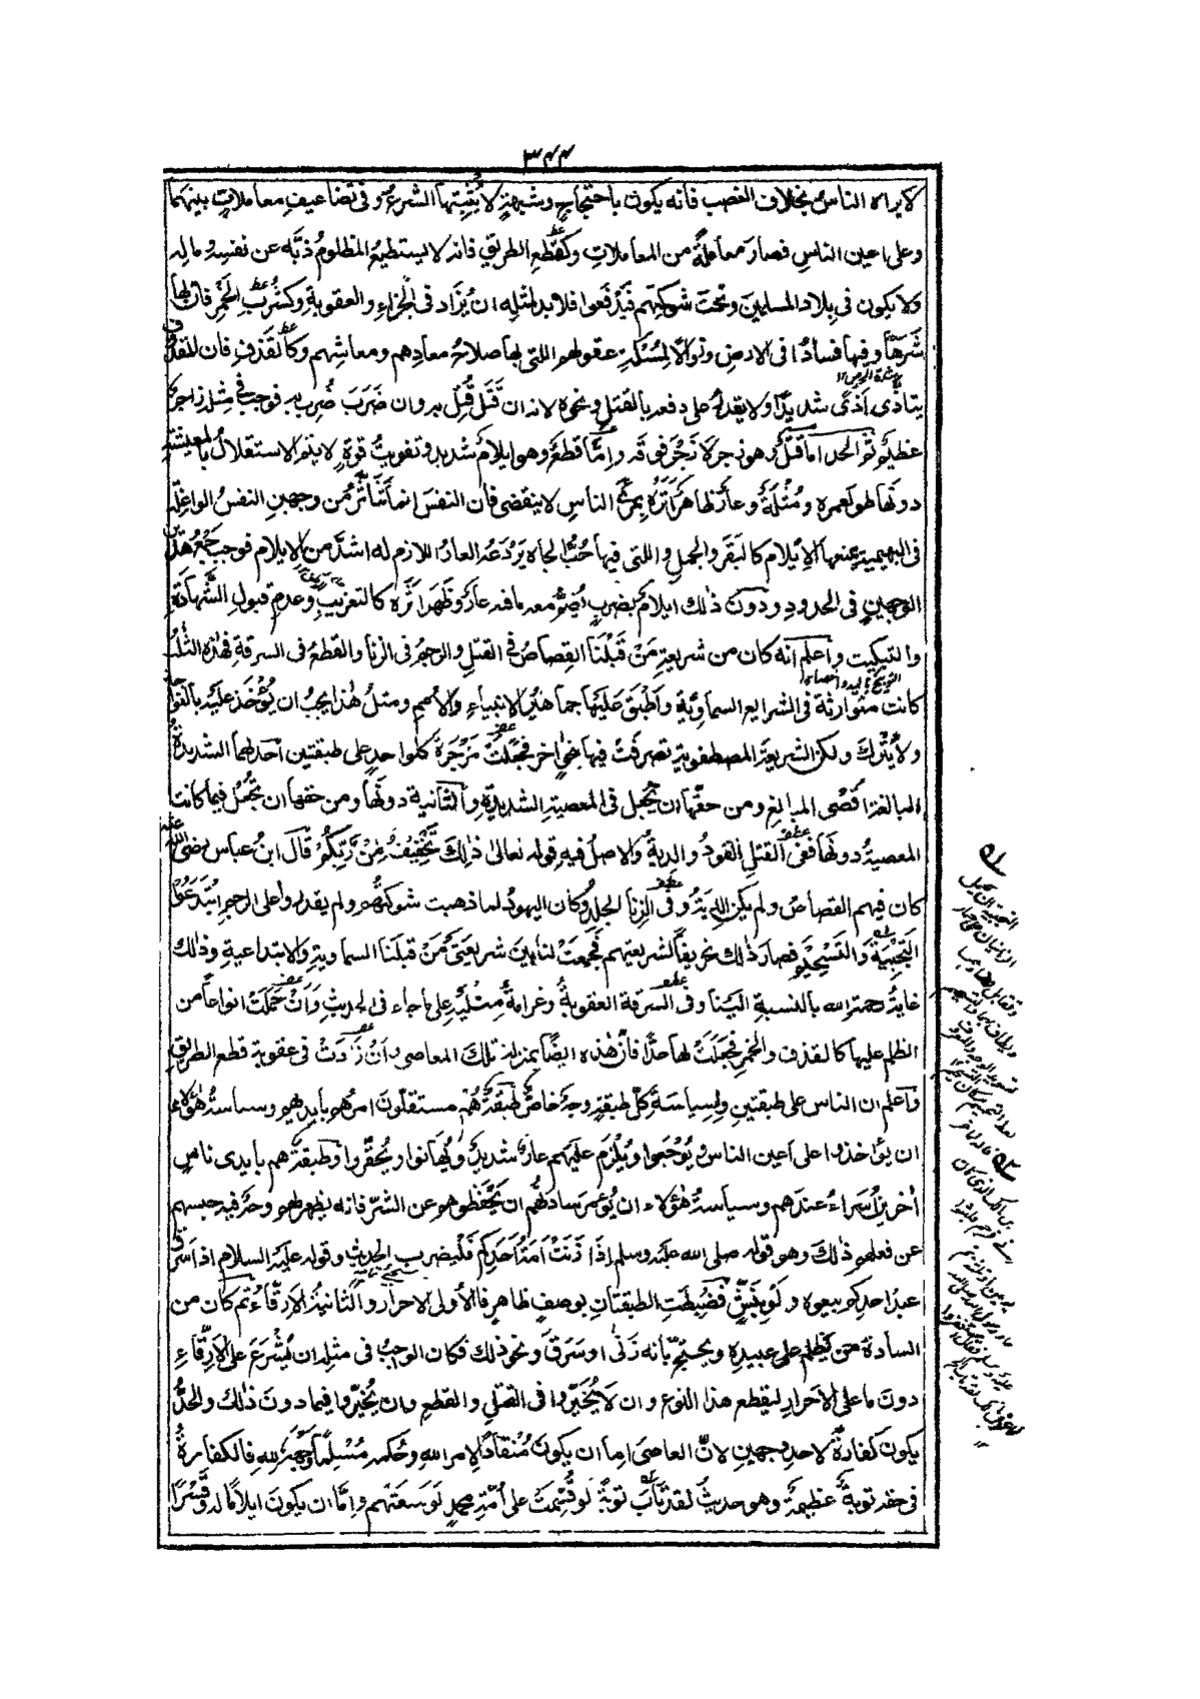 ۳۴۴
لا يراه الناس بخلاف الغصب فانه يكون باحتجاج وشبهةٍ لا يُثْبِتها الشرعُ وفى تضاعيفِ معاملاتٍ بينهما
وعلى اعين الناسِ فصار معاملةً من المعاملاتِ وكقطعِ الطريقِ فانه لا يستطيعُ المظلومُ ذبَّه عن نفسِه وماله
ولا يكون فى بلاد المسلمين وتحتَ شوكتِهم فيَدْفَعوا فلا بد لمثلِه ان يُزَاد فى الجزاءِ والعقوبةِ وكشُربِ الخمرِ فان لها
شَرَهًا وفيها فسادًا فى الارضِ وزوالًا لمُسْكَةِ عقولهم التى بها صلاحُ معادِهم ومعاشِهم وكالقذفِ فان المقذوف
يتأذَّى اَذًى شديدًا ولا يقدرُ على دفعه بالقتلِ ونحوه لانه ان قَتَل قُتِل به وان ضَرَبَ ضُرب به فوجب فى مثله زاجرٌ
عظيمٌ ثم الحد اما قتلٌ وهو زجر لا زَجْرَ فوقه واِمَّا قطعٌ وهو ايلامٌ شديد وتفويتُ قوةٍ لا يتم الاستقلالُ بالمعيشةِ
دونَها طول عمره ومُثْلَةٌ وعارٌ ظاهرٌ اَثَرُه بمرأى الناسِ لا ينقضى فان النفسَ انما تتأثَّرُ من وجهين النفسُ الواغلة
فى البهيميةِ يمنعها الايلام كالبقر والجمل والتى فيها حُبُّ الجاه يَرْدَعُه العارُ اللازم له اشدَّ من الايلام فوجب جمعُ هذين
الوجهين فى الحدودِ ودونَ ذلك ايلامٌ بضربٍ يُضمُّ معه ما فيه عارٌ وظهَر اثرُه كالتغريبِ وعدمِ قبولِ الشَّهادَةِ
والتبكيت واعلم انه كان من شريعةِ مَنْ قَبْلَنا القِصاصُ فى القتلِ والرجمُ فى الزنا والقطعُ فى السرقةِ فهذه الثلثُ
كانت متوارثة فى الشرايع السماويةِ واَطبَقَ عليها جماهيرُ الانبياءِ والاممِ ومثلُ هذا يجبُ ان يُؤْخَذ عليه بالنواجذ
ولا يُتْرك ولكن الشريعةَ المصطفويةَ تصرفتْ فيها بنحوٍ اٰخر فجعلتْ مَزْجَرةَ كل واحدٍ على طبقتين احدٰهما الشديدةُ
المبالغةِ اقصى المبالغِ ومن حقّها ان تُجْعل فى المعصيةِ الشديدةِ والثانية دونَها ومن حقها ان تجُعْل فيما كانت
المعصيةُ دونَها ففى القتلِ القودُ والديةُ والاصل فيه قوله تعالى ذٰلِكَ تَخْفِيْفٌ مِّنْ رَّبِّكُمْ قال ابنُ عباس رضى الله عنه
كان فيهم القصاصُ ولم يكن الديَةُ وفى الزنا الجلدُ وكان اليهودُ لما ذهبت شوكتُهم ولم يقدروا على الرجم ابتَدَعُوا
التَجْبِيَةَ والتَسْحِيْمَ فصار ذلك تحريفًا لشريعتِهم فجُمِعتْ لنا بين شريعتَىْ مَنْ قبلَنا السماويةِ والابتداعيةِ وذٰلك
غايةُ رحمة الله بالنسبةِ الينا وفى السرقة العقوبةُ وغرامةُ مِثْلَيْهِ على ما جاء فى الحديثِ واَنْ حَمَلَتْ انواعاً من
الظلم عليها كالقذف والخمر فجعَلتْ لها حدًّا فانّ هٰذه ايضًا بمنزلةِ تلك المعاصى واَنْ زَادَتْ فى عقوبةِ قطع الطريق
واعلم ان الناس على طبقتينِ ولِسياسَة كلِّ طبقةٍ وجهٌ خاصٌّ طبقةٌ هُمْ مستقلّونَ امرُهم بايديهم وسياسةُ هٰؤلاء
ان يؤاخذوا على اعين الناس ويُوْجَعوا ويُلْزَم عليهم عارٌ شديدٌ ويُهَانوا ويُحقَّروا وطبقةٌ هم بايدى ناسٍ
اٰخرين اُسَراءُ عندهم وسياسةُ هٰؤلاء ان يُؤمرَ سادتُهم ان يَحْفَظُوهم عن الشرّ فانه يظهر لهم وجهٌ فيه حبسهم
عن فعلهم ذلكَ وهو قوله صلى الله عليه وسلم اِذَا زَنَتْ اَمَةُ اَحَدِكم فَلْيضرب الحديث وقوله عليه السلام اذا سَرَقَ
عبدُ احدكم بيعوه ولو بنَشٍّ فضُبِطتِ الطبقتانِ بوصفٍ ظاهرٍ فالأولى الاحرار والثانيةُ الارِقَّاءُ ثم كان من
السادة من يَظْلم على عبيدِه ويحتجّ بانه زَنٰى او سَرَقَ ونحو ذلك فكان الواجبُ فى مثله ان يُشْرَعَ على الاَرِقَّاءِ
دونَ ما على الاحرارِ ليقطع هذا النوع وان لا يُخَيَّروا فى القتلِ والقطعِ وان يُخَيَّروا فيما دونَ ذٰلك والحدُّ
يكون كفارةً لاحدِ وجهين لانَّ العاصىَ اما ان يكونَ مُنْقادًا لامر الله وحُكمِه مُسْلِمًا وجهَه للهِ فالكفارةُ
فى حقه توبةٌ عظيمةٌ وهو حديثُ لقد تابَ توبةً لو قُسِّمتْ على اُمَّةِ محمدٍ لَوَسِعَتْهم واِمَّا ان يكونَ ايلامًا له وقَسْرًا